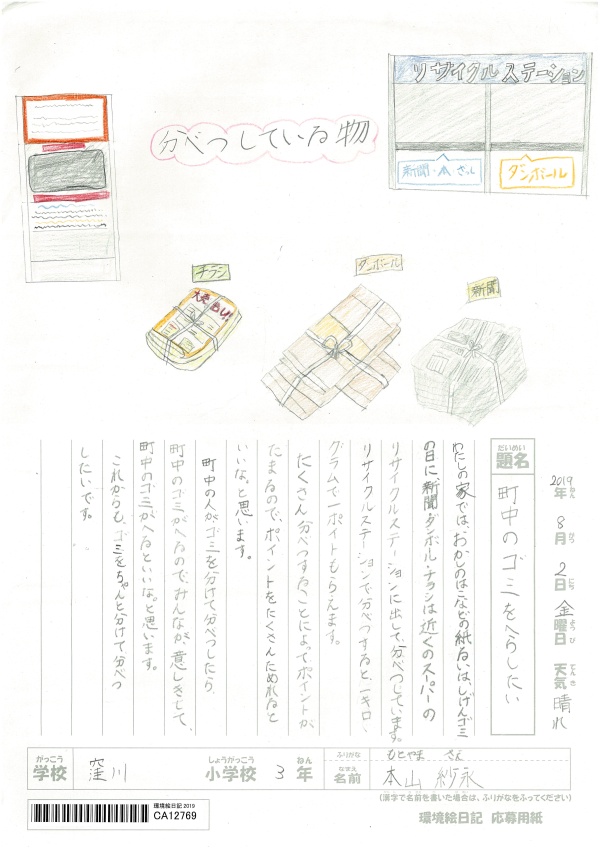 リサイクルステーション
分べつしている物
新聞・本・ざっし
ダンボール
チラシ
大売出し!
ダンボール
新聞
2019年 ねん 8月 がつ 2日 にち 金曜日 ようび 天気 てんき 晴れ
だいめい
題名
町中のゴミをへらしたい
わたしの家では、おかしのはこなどの紙るいは、しげんゴミ
の日に新聞・ダンボール・チラシは近くのスーパーの
リサイクルステーションに出して、分べつしています。
リサイクルステーションで分べつすると、一キロ
グラムで一ポイントもらえます。
たくさん分べつすることによってポイントが
たまるので、ポイントをたくさんためれると
いいな。と思います。
町中の人がゴミを分けて分べつしたら、
町中のゴミがへるので、みんなが意しきして、
町中のゴミがへるといいな。と思います。
これからも、ゴミをちゃんと分けて分べつ
したいです。
がっこう
学校
窪川
しょうがっこう
小学校
3
ねん
年
ふりがな
もとやま さえ
なまえ
名前
本山 紗永
(漢字で名前を書いた場合は、ふりがなをふってください)
環境絵日記 2019
CA12769
環境絵日記 応募用紙